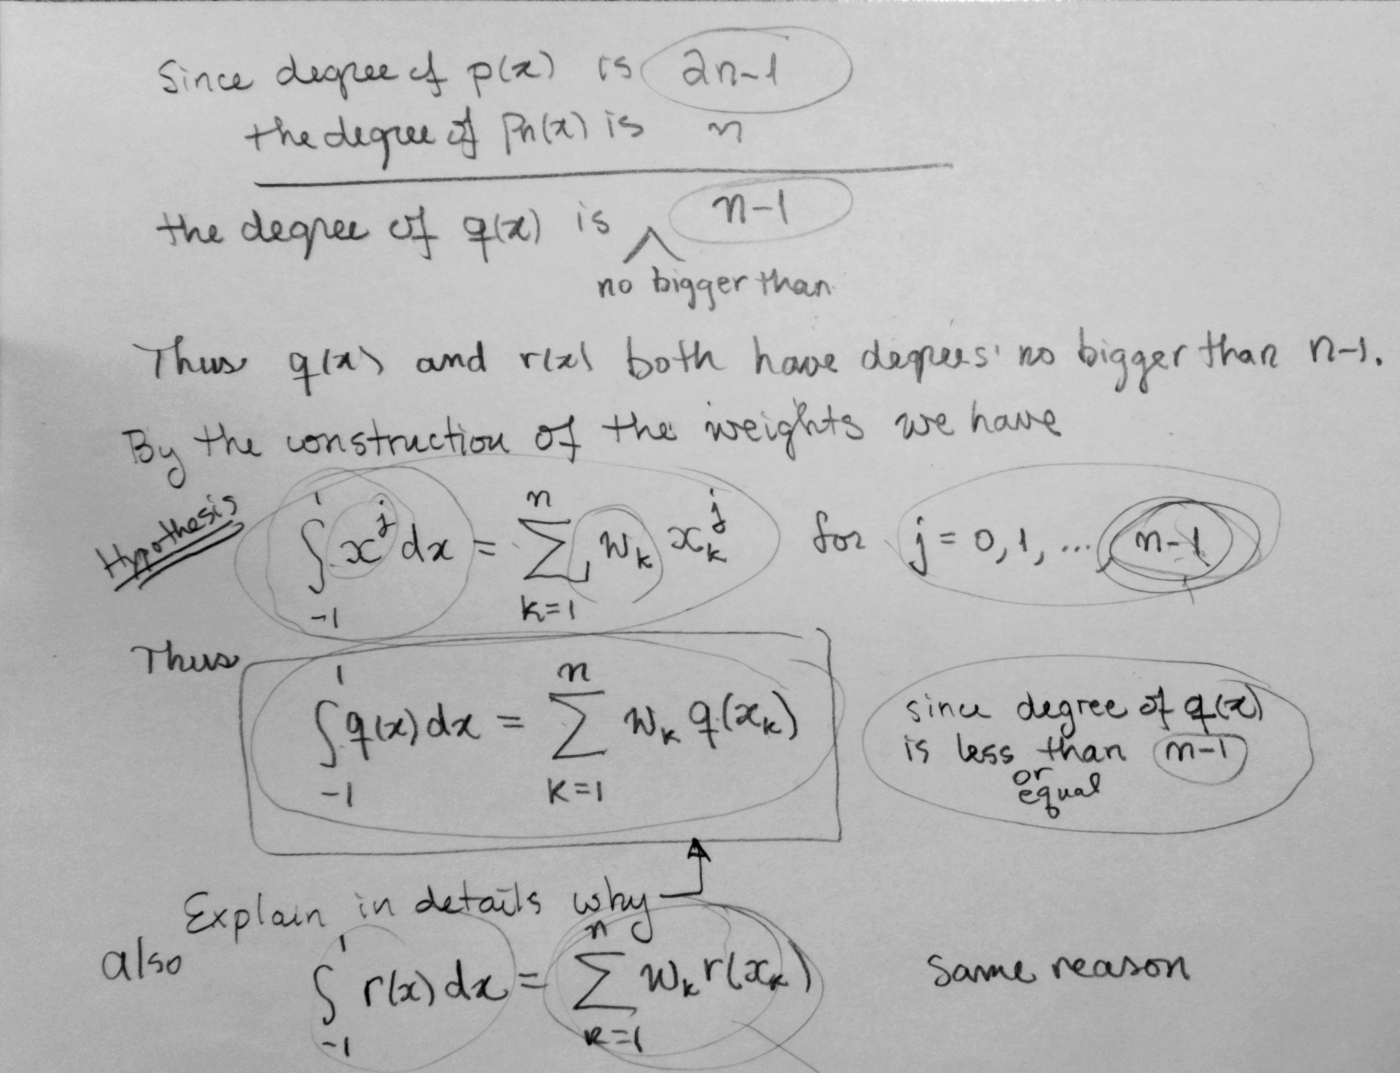 Since degree of p(x) is 2n-1
the degree of Pn(x) is n
the degree of q(x) is n-1
no bigger than
Thus q(x) and r(x) both have degrees no bigger than n-1.
By the construction of the weights we have
Hypothesis
∫_{-1}^{1} x^j dx = ∑_{k=1}^{n} w_k x_k^j for j = 0, 1, ..., n-1
Thus
∫_{-1}^{1} q(x) dx = ∑_{k=1}^{n} w_k q(x_k)
since degree of q(x)
is less than n-1
or
equal
Explain in details why
also
∫_{-1}^{1} r(x) dx = ∑_{k=1}^{n} w_k r(x_k) same reason